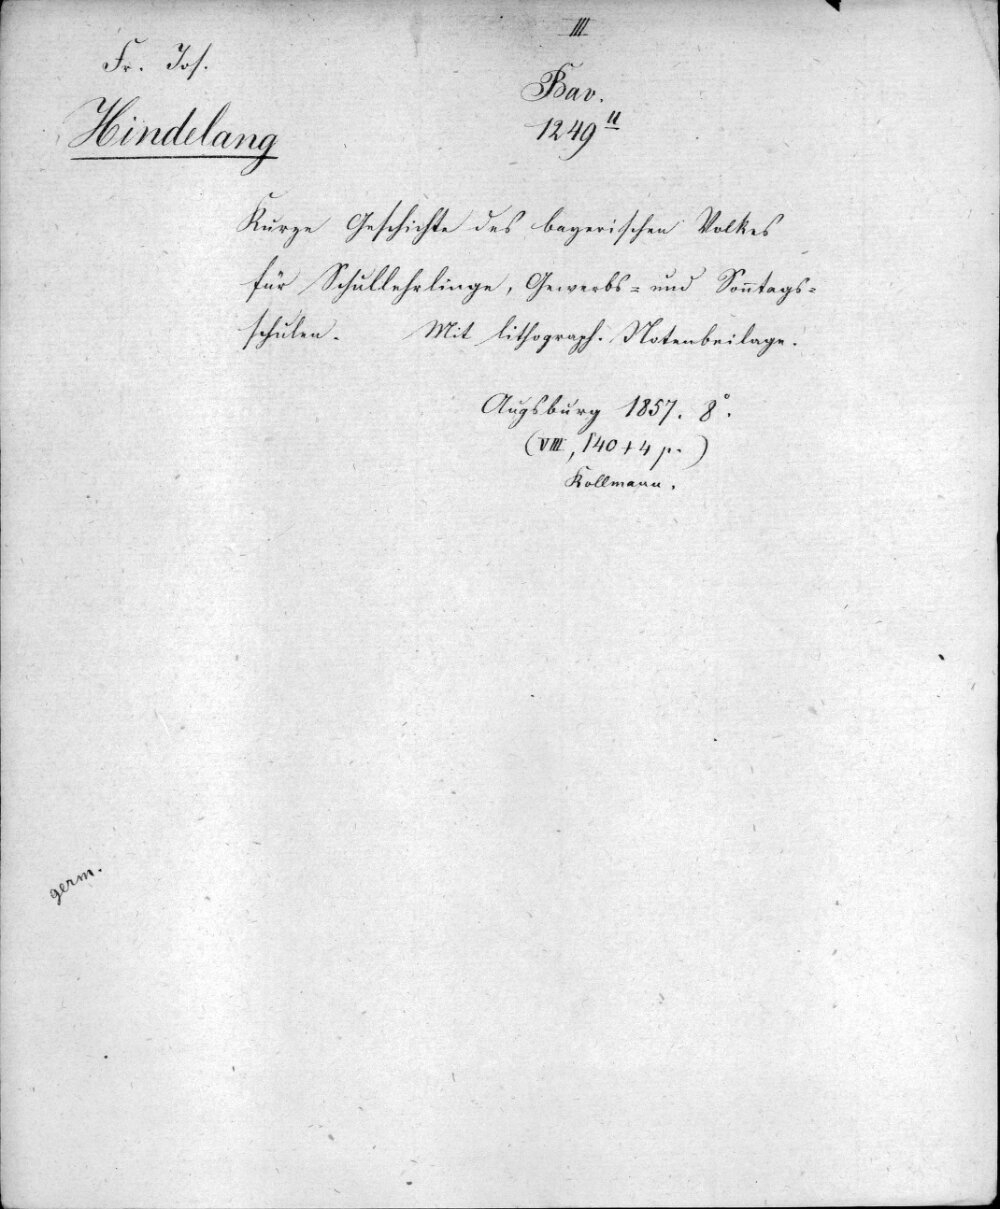 III
Fr. Jos.
Bav.
Hindelang
1249 u
Kurze Geschichte des bayerischen Volkes
für Schullehrlinge, Gewerbs= und Son̄tags=
schulen. Mit lithograph. Notenbeilage.
Augsburg 1857. 8°.
(VIII, 140 + 4 p.)
Kollmann.
germ.